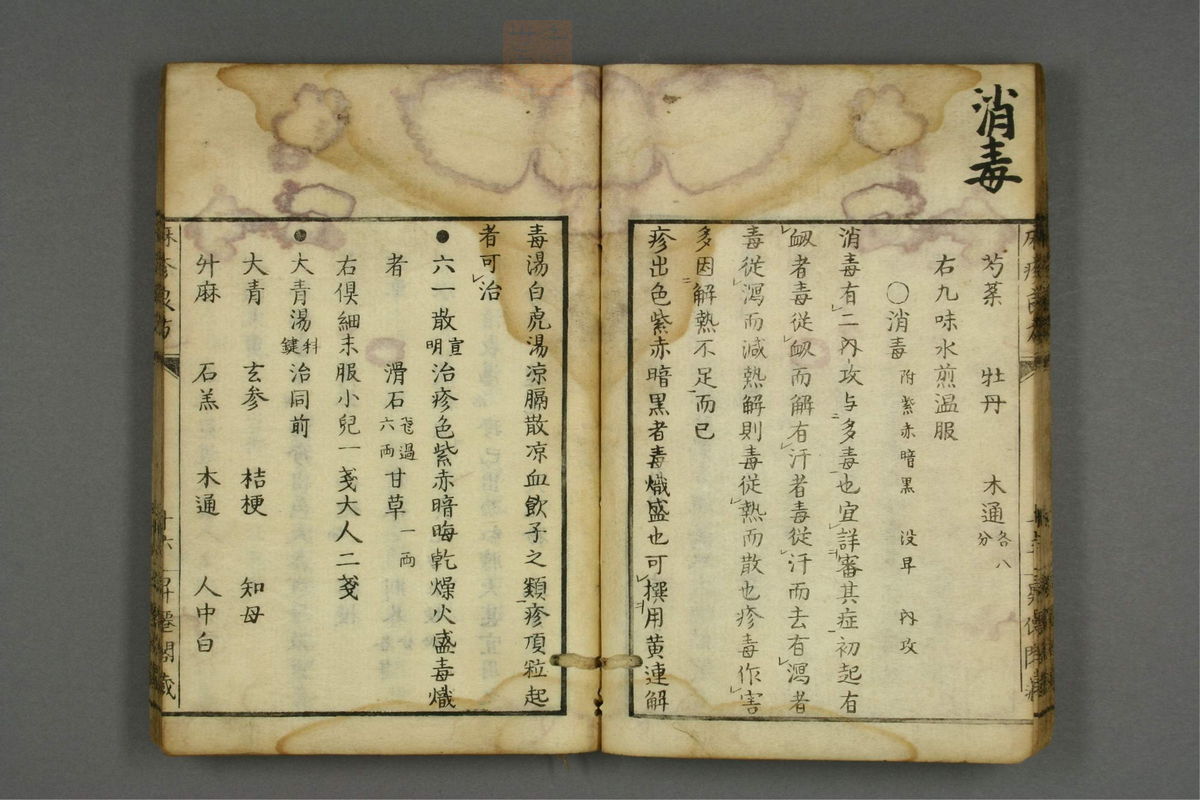 消毒
芍薬 牡丹 木通各八分
右九味水煎温服
○消毒 附紫赤暗黒 没早 内攻
消毒有二内攻与多毒也宜詳審其症初起有
衂者毒従衂而解有汗者毒従汗而去有瀉者
毒従瀉而減熱解則毒従熱而散也疹毒作害
多因解熱不足而已
疹出色紫赤暗黒者毒熾盛也可撰用黄連解
毒湯白虎湯凉膈散凉血飲子之類疹頂粒起
者可治
●六一散宣明治疹色紫赤暗晦乾燥火盛毒熾
者 滑石飛過六両 甘草一両
右倶細末服小兒一戔大人二戔
●大青湯科鍵治同前
大青 玄参 桔梗 知母
升麻 石羔 木通 人中白